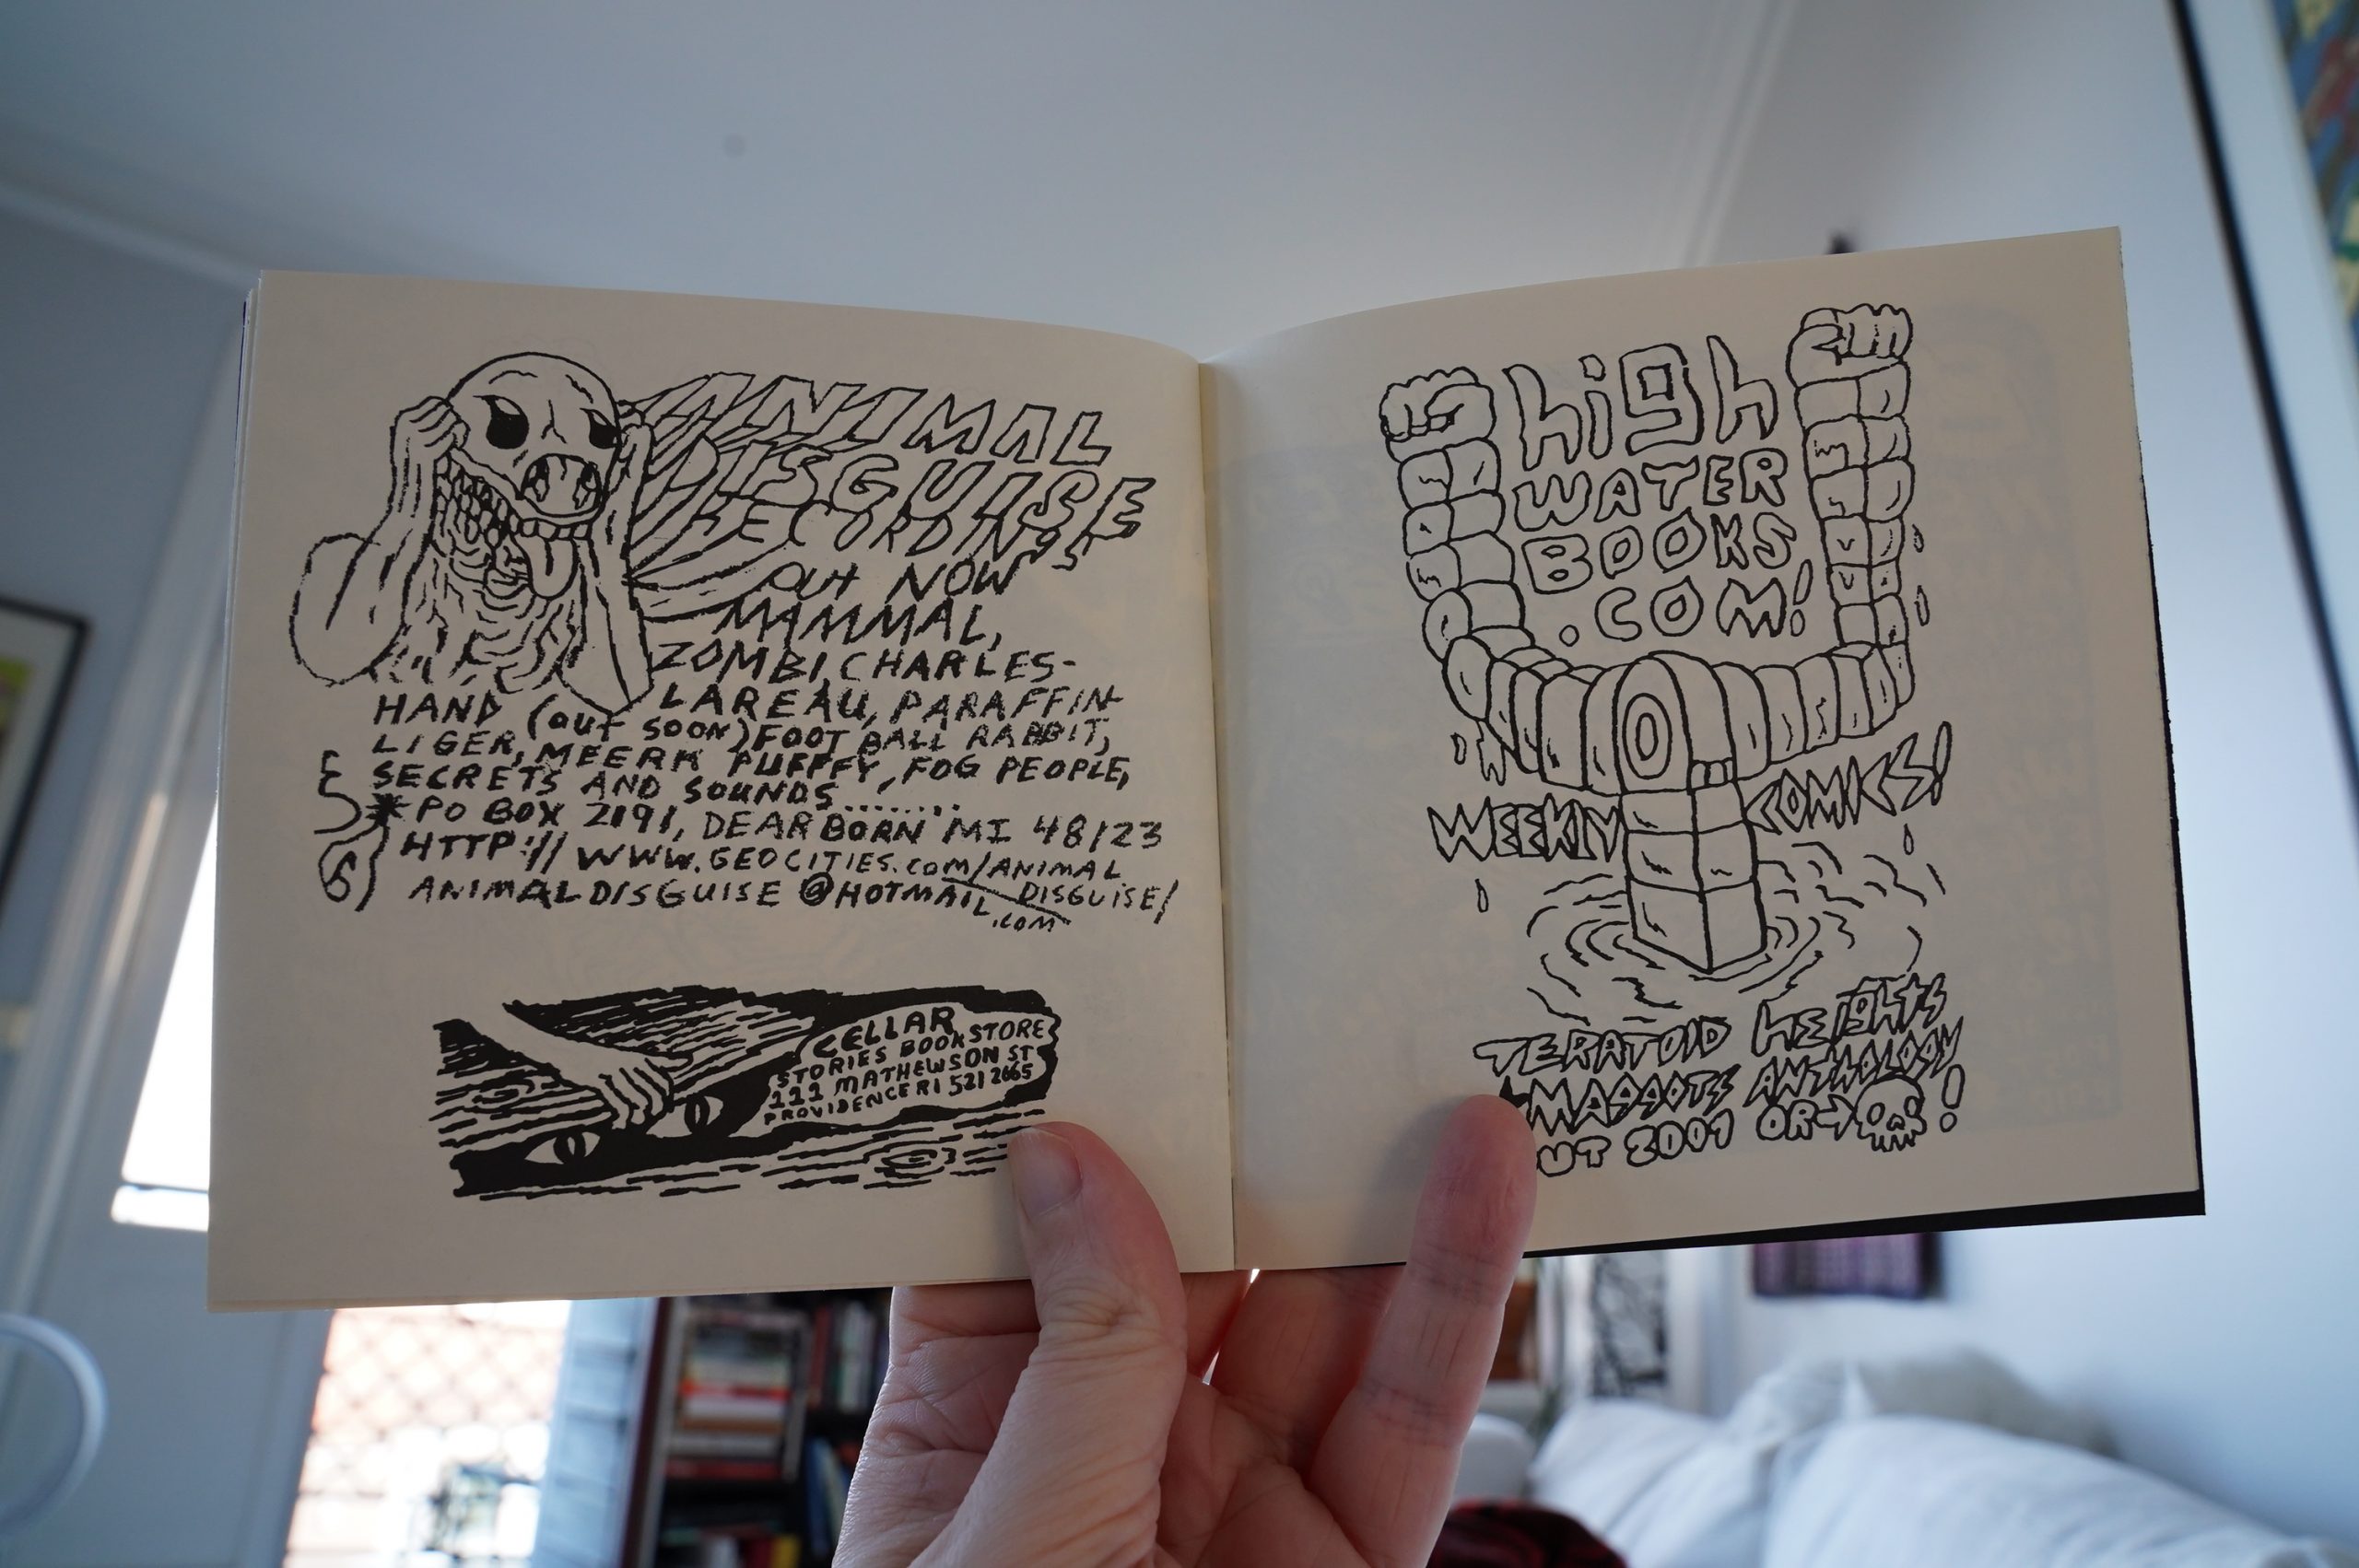 ANIMAL
DISGUISE
RECORDINGS
OUT NOW
MAMMAL,
ZOMBI, CHARLES-
LAREAU, PARAFFIN-
HAND (OUT SOON) FOOT BALL RABBIT,
LIGER, MEERK PUFFFY, FOG PEOPLE,
SECRETS AND SOUNDS........
*PO BOX 2191, DEARBORN MI 48123
HTTP://WWW.GEOCITIES.COM/ANIMAL
DISGUISE/
ANIMALDISGUISE@HOTMAIL
.COM
CELLAR
STORIES BOOKSTORE
111 MATHEWSON ST
PROVIDENCE RI 521 2665
high
WATER
BOOKS
.COM!
WEEKLY COMICS!
TERATOID HEIGHTS
MAGGOTS ANTHOLOGY
2001 OR !